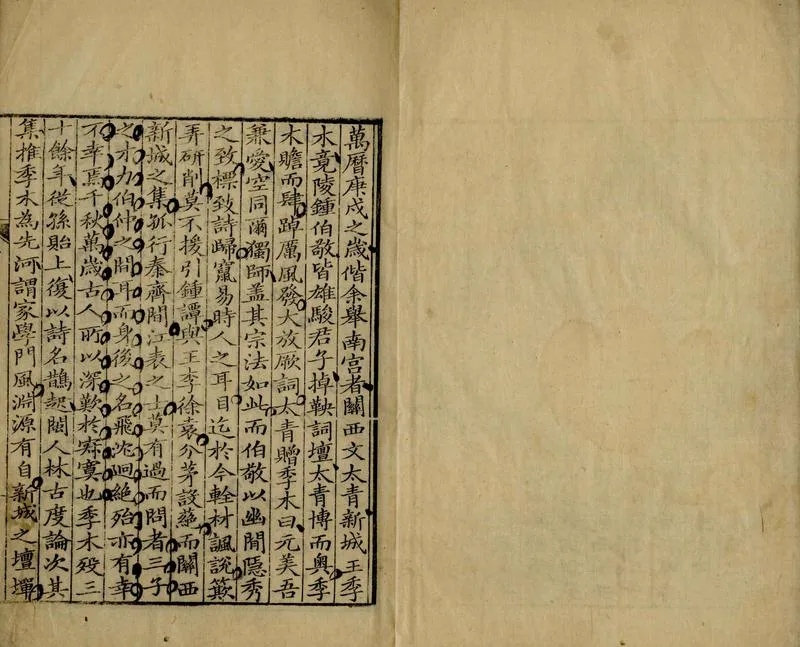 萬曆庚戌之歲偕余舉南宮者關西文太青新城王季
木竟陵鍾伯敬皆雄駿君子掉鞅詞壇太青博而奧季
木贍而肆踔厲風發大放厥詞太青贈季木曰元美吾
兼愛空同爾獨師盖其宗法如此而伯敬以幽閒隱秀
之致標致詩歸竄易時人之耳目迄於今輇材諷說簸
弄研削莫不援引鍾譚與王李徐袁分茅設蕝而關西
新城之集孤行秦齊間江表之士莫有過而問者三子
之才力伯仲之間耳而身後之名飛沉迥絕殆亦有幸
不幸焉千秋萬歲古人所以深歎於寂寞也季木歿三
十餘年從孫貽上復以詩名鵲起閩人林古度論次其
集推季木為先河謂家學門風淵源有自新城之壇墠